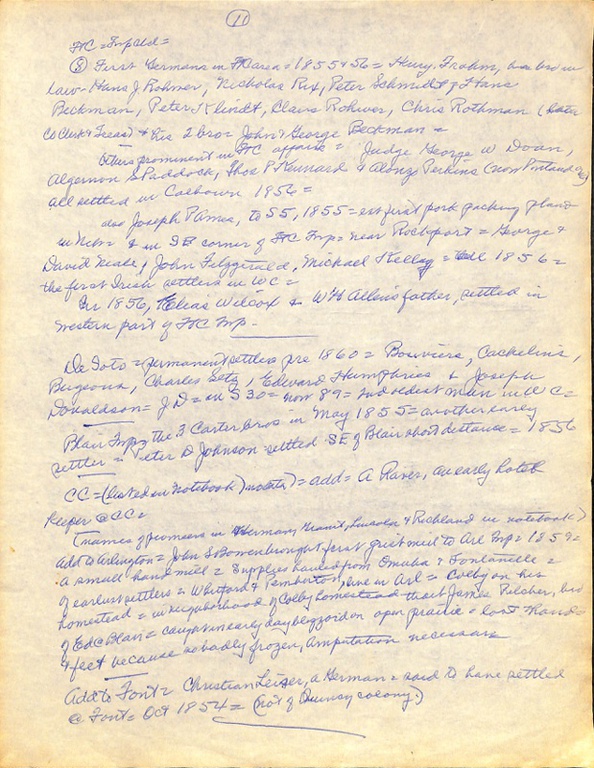 11
FTC = Twp Add =
(8) First Germans in FC area = 1855 & 56 = Henry Frahm, his bro in
law = Hans J Rohwer, Nicholas Rix, Peter Schmidt & Hans
Beckman, Peter Klindt, Claus Rohwer, Chris Rothman (later
Co Clerk & Treas) & his 2 bro = John & George Beckman =
Others prominent in FTC affairs = Judge George W Doan,
Algernon S Paddock, Thos P Kennard & Alonzo Perkins (now Portland Ore)
all settled in Calhoun 1856 =
also Joseph Parnes, to S5, 1855 = est first pork packing plant
in Neb = & in SE corner of FTC Twp = near Rockport = George &
David Neale, John Fitzgerald, Michael Kelley = all 1856 =
the first Irish settlers in WC =
In 1856, Elias Wilcox & W H Allen's father, settled in
western part of FTC Twp =
De Soto = permanent settlers pre 1860 = Bouviers, Cachelins,
Bugeons, Charles Setz, Edward Humphries & Joseph
Donaldson = J D = in S 30 = now 89 = 2nd oldest man in WC =
Blair Twp = the 3 Carter bros in May 1855 = another early
settler = Peter D Johnson = settled SE of Blair short distance = 1856
CC = (listed in notebook) = add = A Raver, an early hotel
keeper @ CC =
(names of pioneers in Herman, Grant, Lincoln & Richland in notebook)
Add to Arlington = John S Bowen brought first grist mill to Arl Twp = 1859 =
a small hand mill = Supplies hauled from Omaha & Fontanelle =
of earliest settlers = Whitford & Pemberton, one in Arl = Colby on his
homestead = in neighborhood of Colby homestead that James Pilcher, bro
of Ed C Blair = caught in early day blizzard on open prairie = lost hands
& feet because so badly frozen, amputation necessary
Add to Font = Christian Leiser, a German = said to have settled
@ Font = Oct 1854 = (not of Quincy colony.)